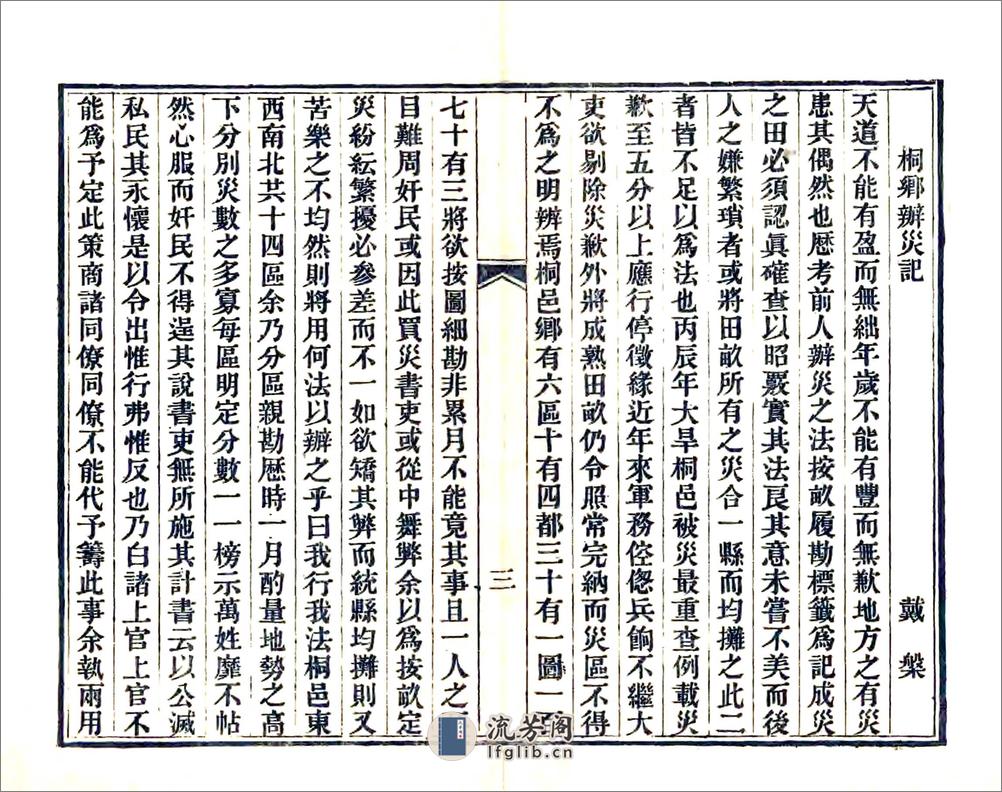 桐鄉辦災記 戴槃
天道不能有盈而無絀年歲不能有豐而無歉地方之有災
患其偶然也歷考前人辦災之法按畝履勘標籤爲記成災
之田必須認眞確查以昭覈實其法良其意未嘗不美而後
人之嫌繁瑣者或將田畝所有之災合一縣而均攤之此二
者皆不足以爲法也丙辰年大旱桐邑被災最重查例載災
歉至五分以上應行停徵緣近年來軍務倥偬兵餉不繼大
吏欲剔除災歉外將成熟田畝仍令照常完納而災區不得
不爲之明辨焉桐邑鄉有六區十有四都三十有一圖一百
三
七十有三將欲按圖細勘非累月不能竟其事且一人之
目難周奸民或因此買災書吏或從中舞弊余以爲按畝定
災紛紜繁擾必參差而不一如欲矯其弊而統縣均攤則又
苦樂之不均然則將用何法以辦之乎曰我行我法桐邑東
西南北共十四區余乃分區親勘歷時一月酌量地勢之高
下分別災數之多寡每區明定分數一一榜示萬姓靡不帖
然心服而奸民不得逞其說書吏無所施其計書云以公滅
私民其永懷是以令出惟行弗惟反也乃白諸上官上官不
能爲予定此策商諸同僚同僚不能代予籌此事余執兩用
流芳阁
lfglib.cn